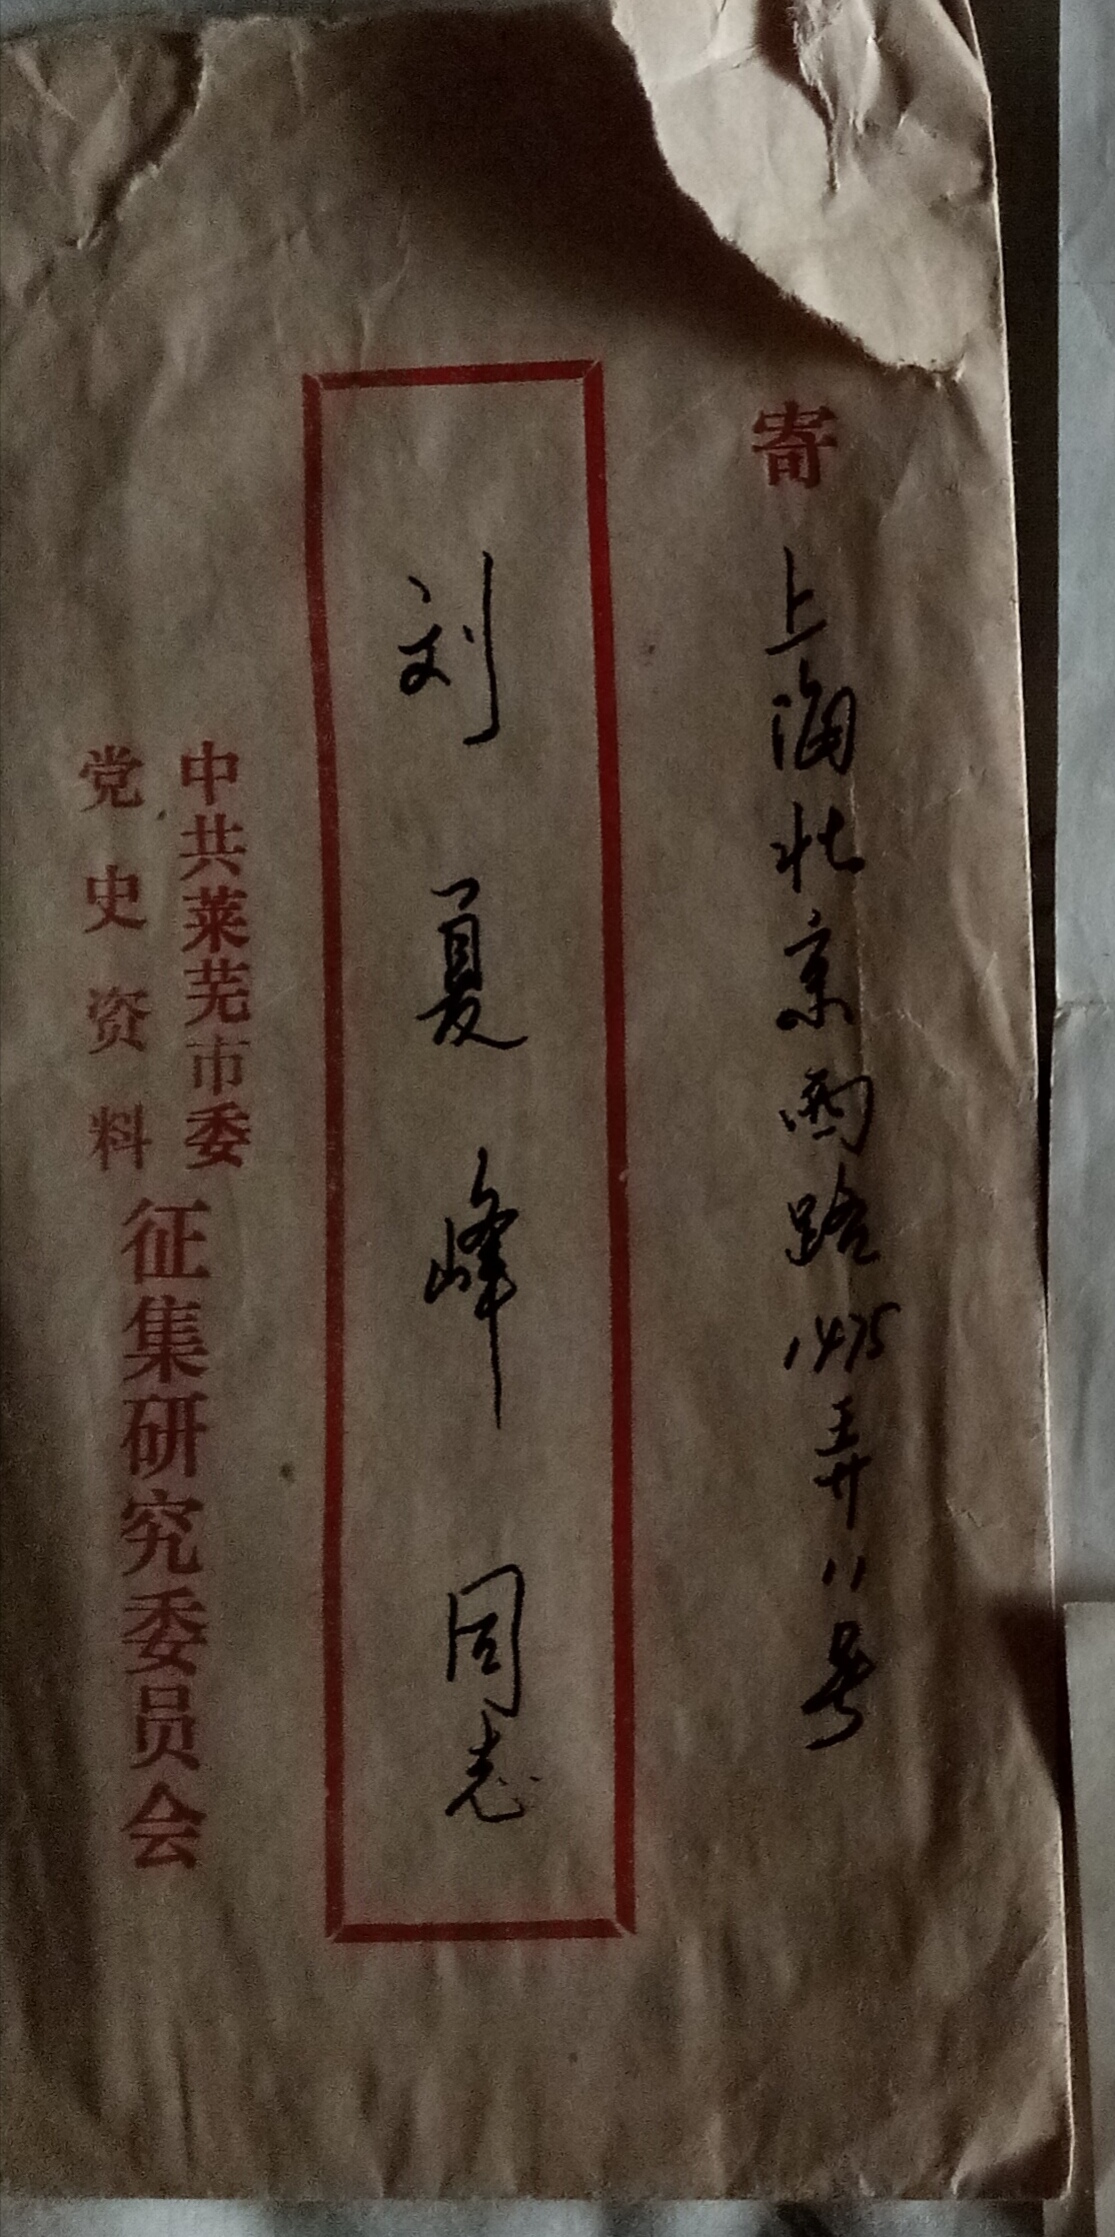 寄 上海北京西路1475弄11号
刘夏峰同志
中共莱芜市委
党史资料
征集研究委员会